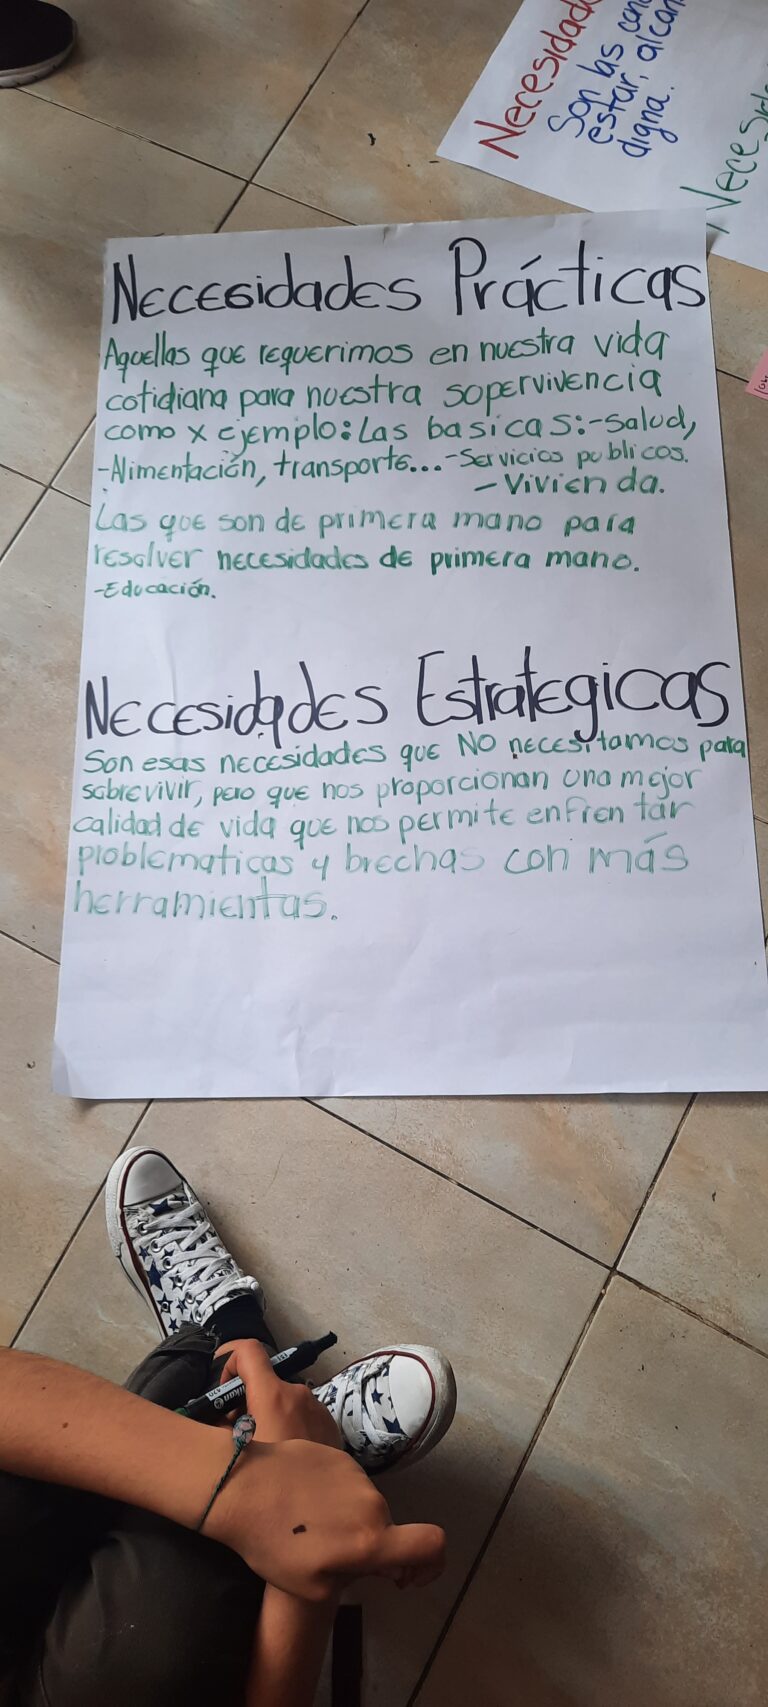 Necesidades Prácticas
Aquellas que requerimos en nuestra vida
cotidiana para nuestra sopervivencia
como x ejemplo: Las basicas: - Salud,
- Alimentación, transporte... - Servicios publicos.
- Vivienda.
Las que son de primera mano para
resolver necesidades de primera mano.
- Educación.
Necesidades Estrategicas
Son esas necesidades que NO necesitamos para
sobrevivir, pero que nos proporcionan una mejor
calidad de vida que nos permite enfrentar
problematicas y brechas con más
herramientas.
Necesidad
Son las con
estar, alcan
digna.
Neces